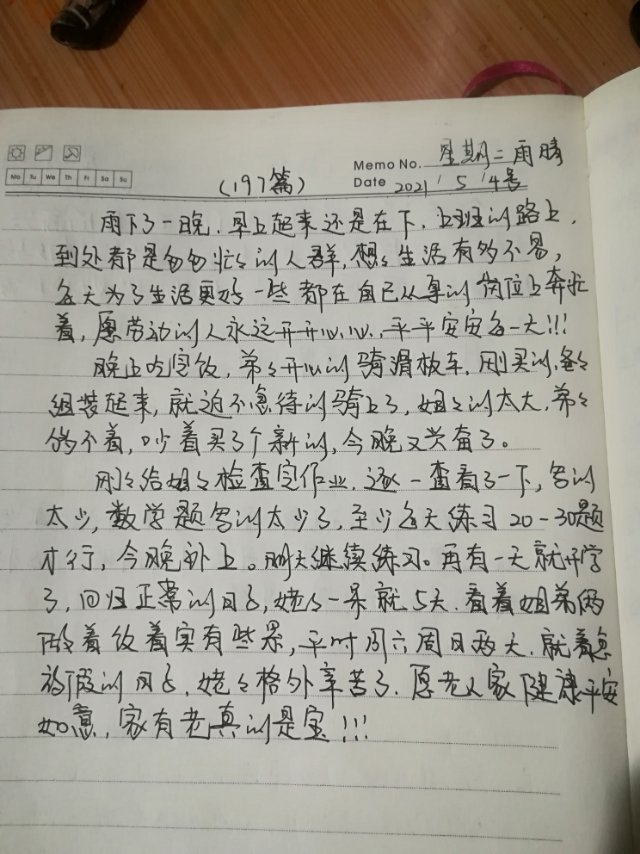 Memo No. 星期二雨晴
Mo Tu We Th Fr Sa Su
(197篇)
Date 2021/5/4号
雨下了一晚,早上起来还是在下,上班的路上,
到处都是匆匆忙々的人群,想々生活有多不易,
每天为了生活更好一些都在自己从事的岗位上奔忙
着,愿劳动的人永远开开心心,平平安安每一天!!!
晚上吃完饭,弟々开心的骑滑板车,刚买的,爸々
组装起来,就迫不急待的骑上了,姐々的太大,弟々
的不着,吵着买了个新的,今晚又兴奋了。
刚々给姐々检查完作业,逐一查看了一下,写的
太少,数学题写的太少了,至少每天练习20-30题
才行,今晚补上。明天继续练习。再有一天就开学
了,回归正常的日子,姥々一呆就5天,看着姐弟两
陪着伙着实有些累,平时周六周日两天,就着急
放假的日子,姥々格外辛苦了,愿老人家健康平安
如意,家有老真的是宝!!!